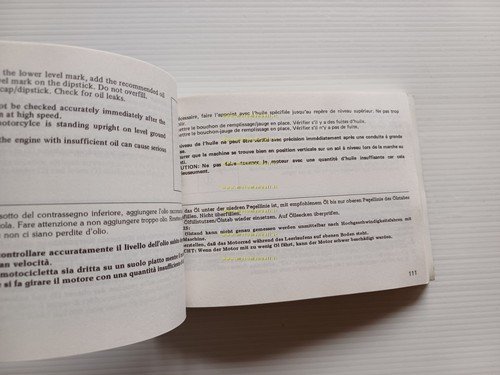 the lower level mark, add the recommended oil
vel mark on the dipstick. Do not overfill.
cap/dipstick. Check for oil leaks.
ot be checked accurately immediately after the
n at high speed.
motorcylce is standing upright on level ground
the engine with insufficient oil can cause serious
sotto del contrassegno inferiore, aggiungere l'olio
cola. Fare attenzione a non aggiungere troppo olio.
non ci siano perdite d'olio.
controllare accuratamente il livello dell'olio
an velocità.
motocicletta sia dritta su un suolo piatto
si fa girare il motore con una quantità insufficiente
essaire, faire l'appoint avec l'huile spécifiée jusqu'au repère de niveau supérieur. Ne pas trop
ettre le bouchon de remplissage/jauge en place. Vérifier s'il y a des fuites d'huile.
ettre le bouchon-jauge de remplissage en place. Vérifier s'il y a pas de fuite.
niveau de l'huile ne peut être vérifié avec précision immédiatement après une conduite à grande
urer que la machine se trouve bien en position verticale sur un sol à niveau lors de la marche au
UTION: Ne pas faire tourner le moteur avec une quantité d'huile insuffisante car cela
ieusement.
das Öl unter der niedren Pegellinie ist, mit empfohlenem Öl bis zur oberen Pegellinie des Ölstabs
füllen. Nicht überfüllen.
Öleinfüllstutzen/Ölstab wieder einsetzen. Auf Ölleacken überprüfen.
Ölstand kann nicht genau gemessen werden unmittelbar nach Hochgeschwindigkeitsfahren mit
Maschine.
erstellen, daß das Motorrad während des Leerlaufens auf ebenen Boden steht.
CHT: Wenn der Motor mit zu wenig Öl fährt, kann der Motor schwer beschädigt werden.
111